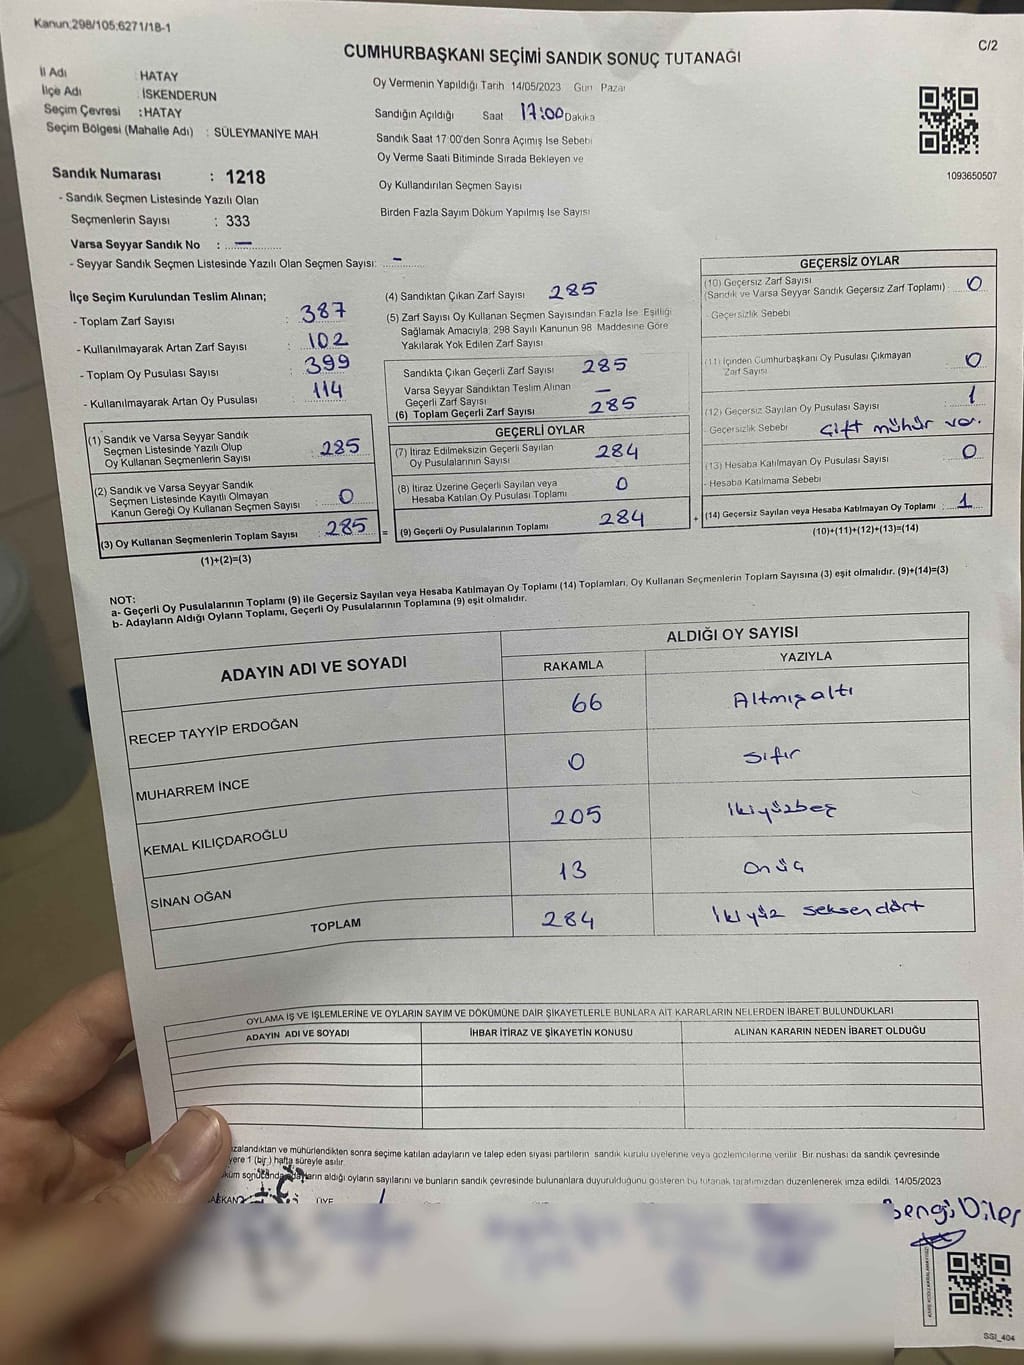 Kanun:298/105;6271/18-1
C/2
CUMHURBAŞKANI SEÇİMİ SANDIK SONUÇ TUTANAĞI
İl Adı : HATAY
İlçe Adı : İSKENDERUN
Seçim Çevresi : HATAY
Seçim Bölgesi (Mahalle Adı) : SÜLEYMANİYE MAH.
Sandık Numarası : 1218
- Sandık Seçmen Listesinde Yazılı Olan
Seçmenlerin Sayısı : 333
Varsa Seyyar Sandık No : —
- Seyyar Sandık Seçmen Listesinde Yazılı Olan Seçmen Sayısı: -
Oy Vermenin Yapıldığı Tarih 14/05/2023 Gün Pazar
Sandığın Açıldığı Saat 17:00 Dakika
Sandık Saat 17:00'den Sonra Açımış İse Sebebi
Oy Verme Saati Bitiminde Sırada Bekleyen ve
Oy Kullandırılan Seçmen Sayısı
Birden Fazla Sayım Döküm Yapılmış İse Sayısı
1093650507
İlçe Seçim Kurulundan Teslim Alınan;
- Toplam Zarf Sayısı : 387
- Kullanılmayarak Artan Zarf Sayısı : 102
- Toplam Oy Pusulası Sayısı : 399
- Kullanılmayarak Artan Oy Pusulası : 114
(1) Sandık ve Varsa Seyyar Sandık
Seçmen Listesinde Yazılı Olup
Oy Kullanan Seçmenlerin Sayısı : 285
(2) Sandık ve Varsa Seyyar Sandık
Seçmen Listesinde Kayıtlı Olmayan
Kanun Gereği Oy Kullanan Seçmen Sayısı : 0
(3) Oy Kullanan Seçmenlerin Toplam Sayısı : 285
(1)+(2)=(3)
(4) Sandıktan Çıkan Zarf Sayısı 285
(5) Zarf Sayısı Oy Kullanan Seçmen Sayısından Fazla İse Eşitliği
Sağlamak Amacıyla, 298 Sayılı Kanunun 98. Maddesine Göre
Yakılarak Yok Edilen Zarf Sayısı
Sandıkta Çıkan Geçerli Zarf Sayısı 285
Varsa Seyyar Sandıktan Teslim Alınan
Geçerli Zarf Sayısı —
(6) Toplam Geçerli Zarf Sayısı 285
GEÇERLİ OYLAR
(7) İtiraz Edilmeksizin Geçerli Sayılan
Oy Pusulalarının Sayısı 284
(8) İtiraz Üzerine Geçerli Sayılan veya
Hesaba Katılan Oy Pusulası Toplamı 0
= (9) Geçerli Oy Pusulalarının Toplamı 284 +
GEÇERSİZ OYLAR
(10) Geçersiz Zarf Sayısı
(Sandık ve Varsa Seyyar Sandık Geçersiz Zarf Toplamı) : 0
- Geçersizlik Sebebi
(11) İçinden Cumhurbaşkanı Oy Pusulası Çıkmayan
Zarf Sayısı 0
(12) Geçersiz Sayılan Oy Pusulası Sayısı 1
- Geçersizlik Sebebi Çift mühür var.
(13) Hesaba Katılmayan Oy Pusulası Sayısı 0
- Hesaba Katılmama Sebebi
(14) Geçersiz Sayılan veya Hesaba Katılmayan Oy Toplamı : 1
(10)+(11)+(12)+(13)=(14)
NOT:
a- Geçerli Oy Pusulalarının Toplamı (9) ile Geçersiz Sayılan veya Hesaba Katılmayan Oy Toplamı (14) Toplamları, Oy Kullanan Seçmenlerin Toplam Sayısına (3) eşit olmalıdır. (9)+(14)=(3)
b- Adayların Aldığı Oyların Toplamı, Geçerli Oy Pusulalarının Toplamına (9) eşit olmalıdır.
ADAYIN ADI VE SOYADI
ALDIĞI OY SAYISI
RAKAMLA YAZIYLA
RECEP TAYYİP ERDOĞAN 66 Altmışaltı
MUHARREM İNCE 0 sıfır
KEMAL KILIÇDAROĞLU 205 İkiyüzbeş
SİNAN OĞAN 13 Onüç
TOPLAM 284 İkiyüz seksendört
OYLAMA İŞ VE İŞLEMLERİNE VE OYLARIN SAYIM VE DÖKÜMÜNE DAİR ŞİKAYETLERLE BUNLARA AİT KARARLARIN NELERDEN İBARET BULUNDUKLARI
ADAYIN ADI VE SOYADI İHBAR İTİRAZ VE ŞİKAYETİN KONUSU ALINAN KARARIN NEDEN İBARET OLDUĞU
zalandıktan ve mühürlendikten sonra seçime katılan adayların ve talep eden siyası partilerin sandık kurulu üyelerine veya gözlemcilerine verilir. Bir nushası da sandık çevresinde
yere 1 (bir) hafta süreyle asılır.
küm sonucunda adayların aldığı oyların sayılarını ve bunların sandık çevresinde bulunanlara duyurulduğunu gösteren bu tutanak tarafımızdan düzenlenerek imza edildi. 14/05/2023
ÜYE
Bengi Diler
SSI_404